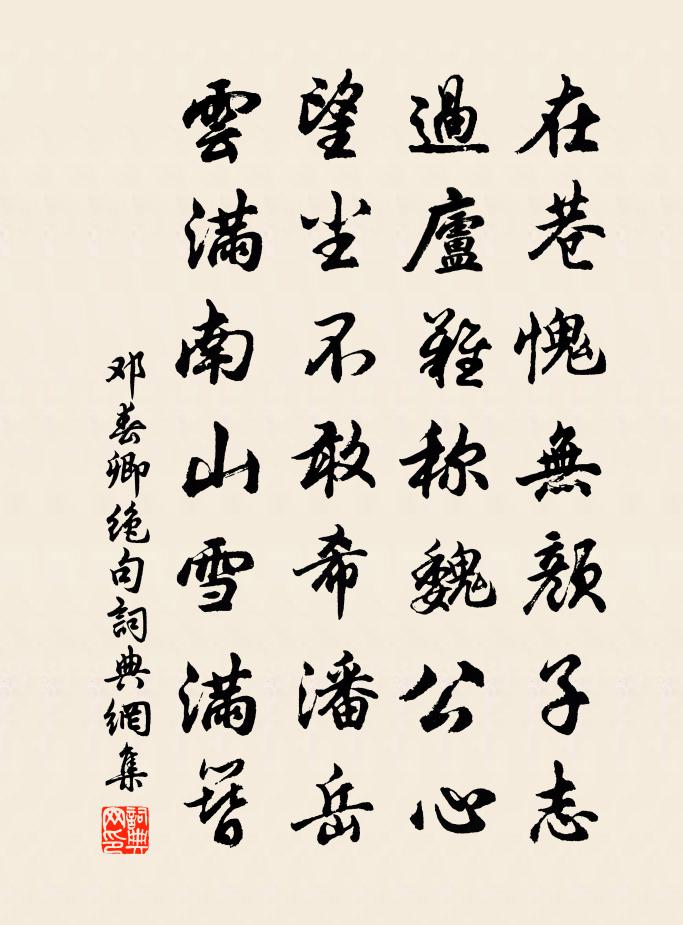 在巷愧無顔子志
過廬難称魏公心
望尘不敢希潘岳
雲滿南山雪滿簪
邓春卿绝句詞典網集
詞典网印